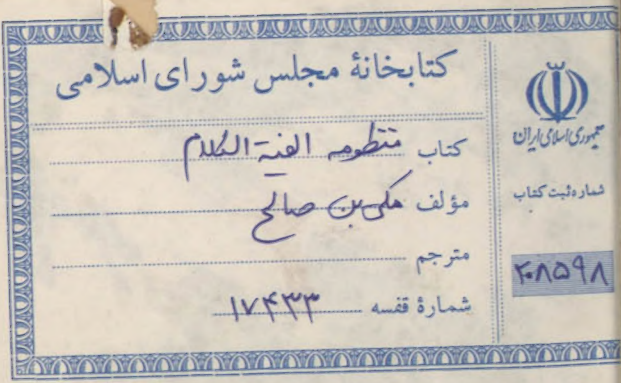 کتابخانهٔ مجلس شورای اسلامی
کتاب منظومه الفیة الکلام
مؤلف مکی بن صالح
مترجم
شمارهٔ قفسه ۱۷۴۳۳
جمهوری اسلامی ایران
شماره ثبت کتاب
۲۰۸۵۹۸